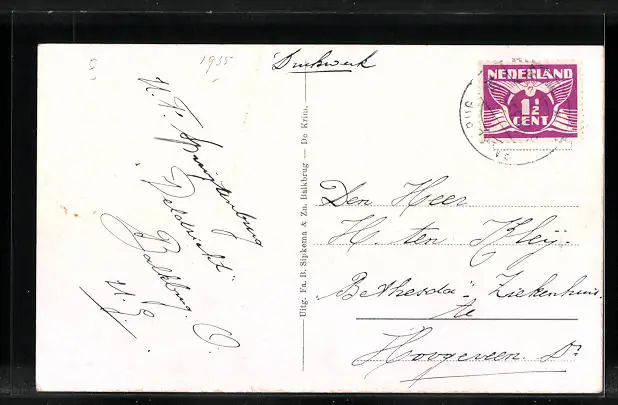 1935
Drukwerk
NEDERLAND
1½
CENT
Den Heer
H. ten Kleij.
"Bethesda"- Ziekenhuis.
te
Hoogeveen. Dr.
Uitg. Fa. B. Sipkema & Zn. Balkbrug — De Krim.
Balkbrug. O.